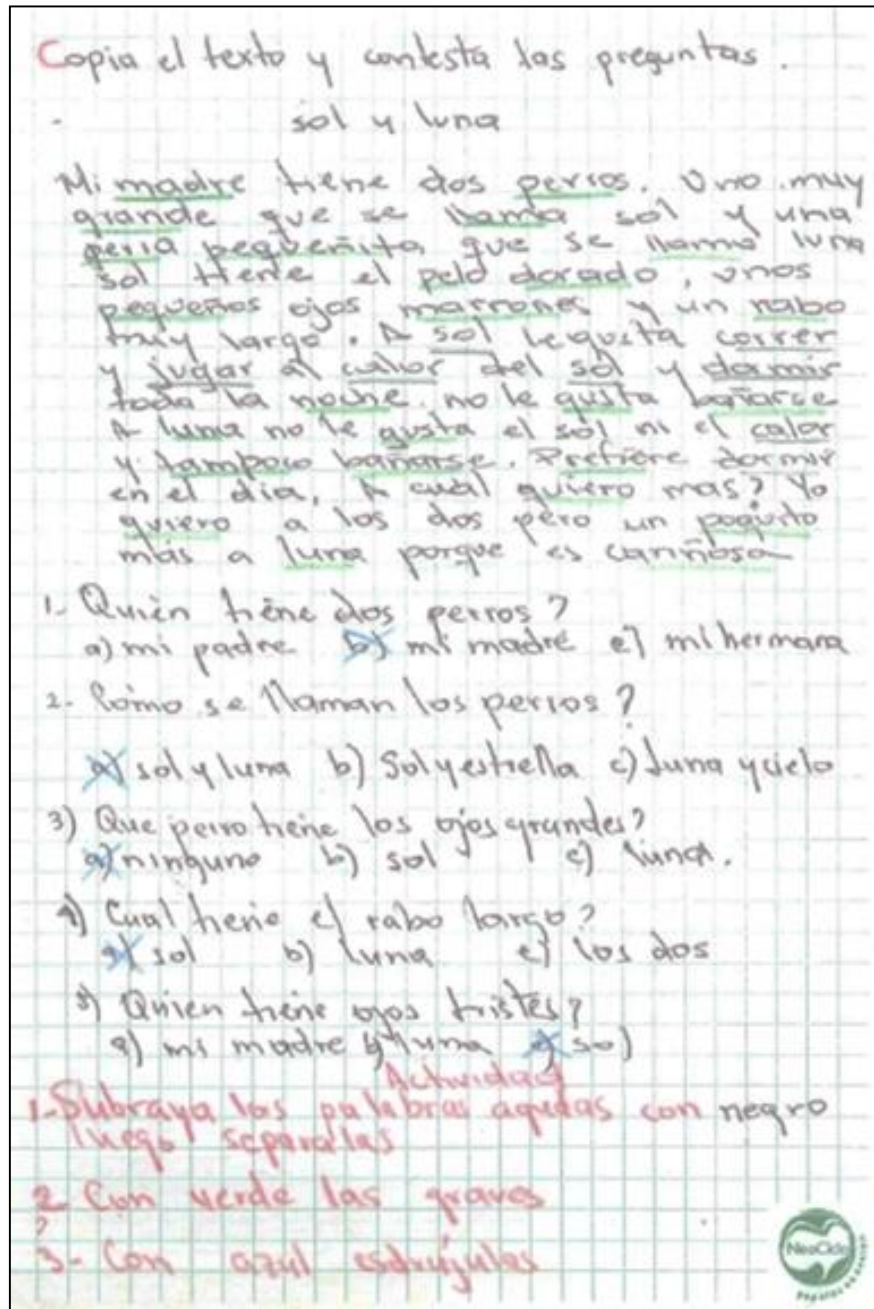 Copia el texto y contesta las preguntas.
sol y luna
Mi madre tiene dos perros. Uno muy
grande que se llama sol y una
perra pequeñita que se llama luna
sol tiene el pelo dorado, unos
pequeños ojos marrones y un rabo
muy largo. A sol le gusta correr
y jugar al calor del sol y dormir
toda la noche. no le gusta bañarse
A luna no le gusta el sol ni el calor
y tampoco bañarse. Prefiere dormir
en el dia. A cual quiero mas? Yo
quiero a los dos pero un poquito
más a luna porque es cariñosa
1- Quién tiene dos perros?
a) mi padre b) mi madre c) mi hermana
2- Cómo se llaman los perros?
a) sol y luna b) Sol y estrella c) Luna y cielo
3) Que perro tiene los ojos grandes?
a) ninguno b) sol c) luna.
4) Cual tiene el rabo largo?
a) sol b) luna c) los dos
5) Quien tiene ojos tristes?
a) mi madre b) luna c) sol
Actividad
1- Subraya las palabras agudas con negro
luego separalas
2 Con verde las graves
3- Con azul esdrújulas
NeoCiclo